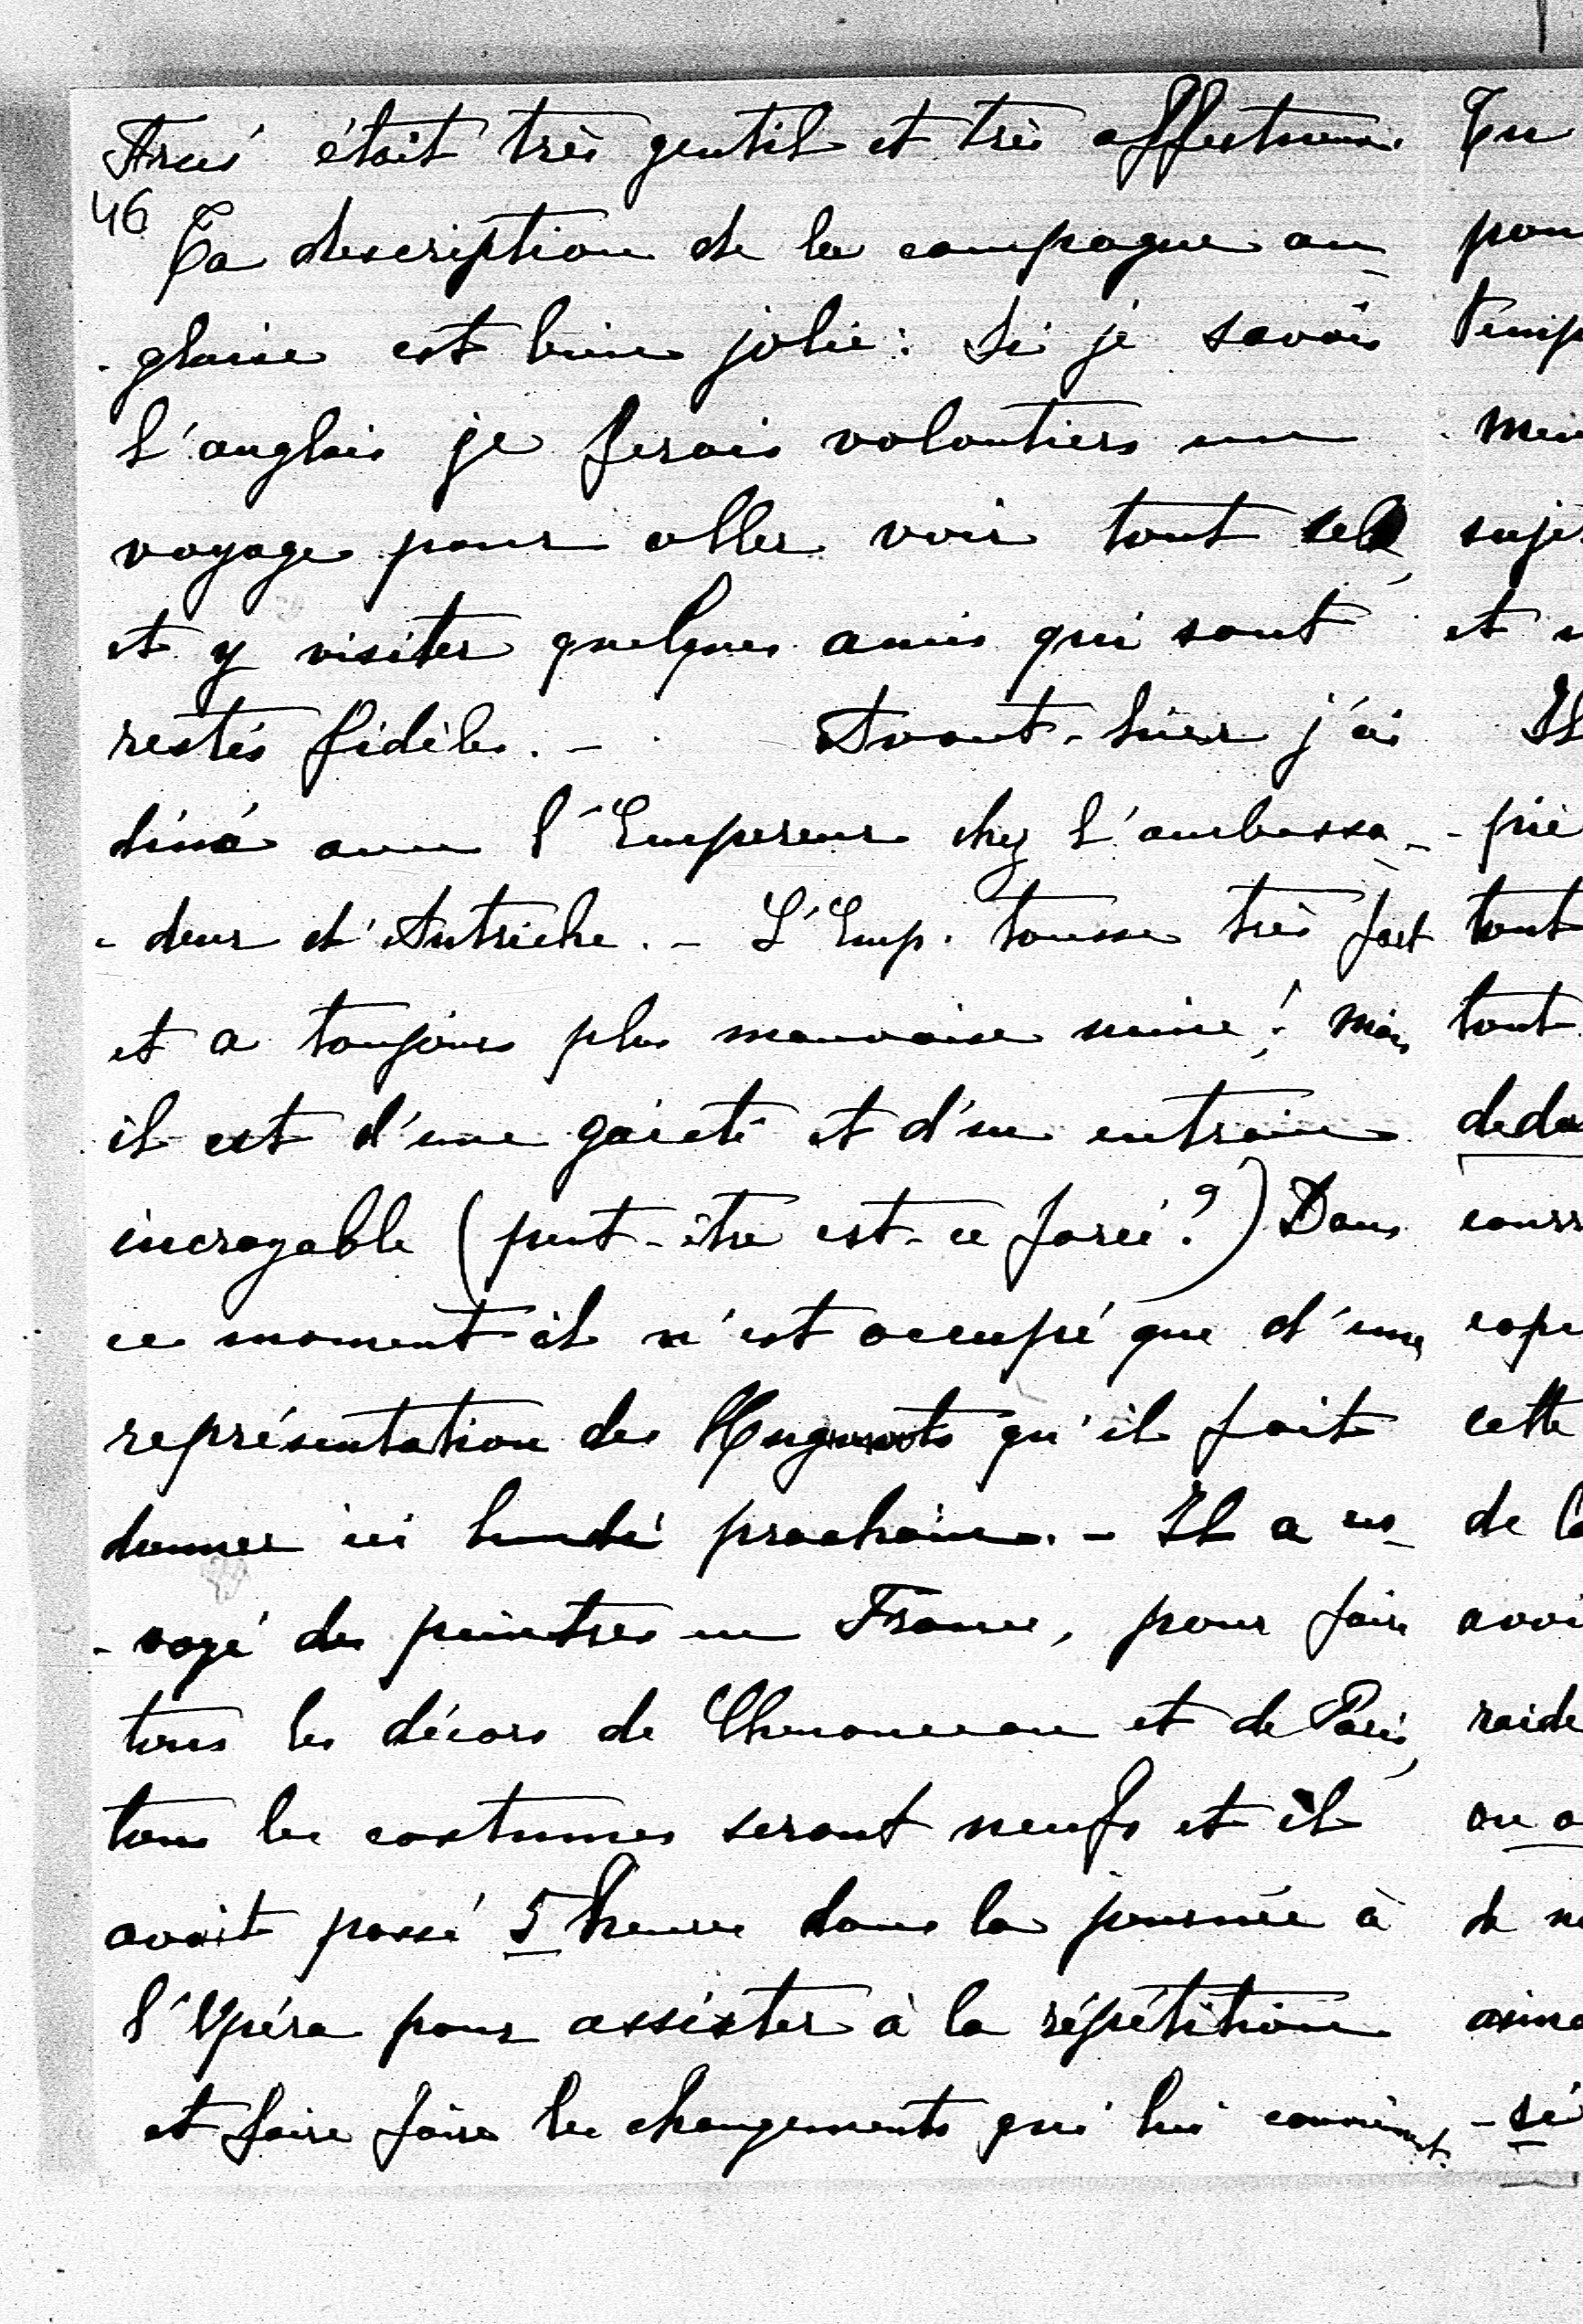 était très gentil et très affectueux.
46
Ta description de la campagne an-
-glaise est bien jolie: Si je savais
l'anglais je ferais volontiers un
voyage pour aller voir tout cela,
et y visiter quelques amis qui sont
restés fidèles. - Avant-hier j'ai
diné avec l'Empereur chez l'ambassa-
-deur d'Autriche. - L'Emp. tousse très fort
et a toujours plus mauvaise mine! Mais
il est d'une gaieté et d'un entrain
incroyable (peut-être est-ce forcé?) Dans
ce moment il n'est occupé que d'une
représentation des Huguenots qu'il fait
donner ici lundi prochain. - Il a en-
-voyé des peintres en France, pour faire
tous les décors de Chenonceau et de Paris,
tous les costumes seront neufs et il
avait passé 5 heures dans la journée à
l'Opéra pour assister à la répétition
et faire faire les changements qui lui convienent.
Tu
pour
temp
sujet
et
Il
tout
tout
deda
cette
de
avoi
raide
si